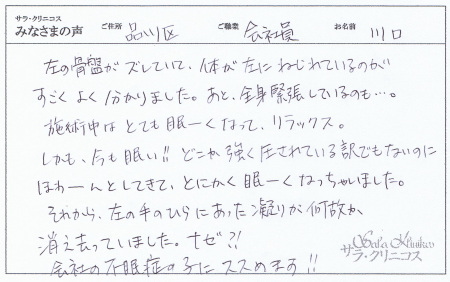 サラ・クリニコス
みなさまの声 ご住所 品川区 ご職業 会社員 お名前 川口
左の骨盤がズレていて、体が左にねじれているのが
すごくよく分かりました。あと、全身緊張しているのも…。
施術中はとても眠ーくなって、リラックス。
しかも、今も眠い!! どこか強く圧されている訳でもないのに
ほわーんとしてきて、とにかく眠ーくなっちゃいました。
それから、左の手のひらにあった凝りが何故か
消え去っていました。ナゼ?!
会社の不眠症の子にススめます!!
Sara Klinikos
サラ・クリニコス